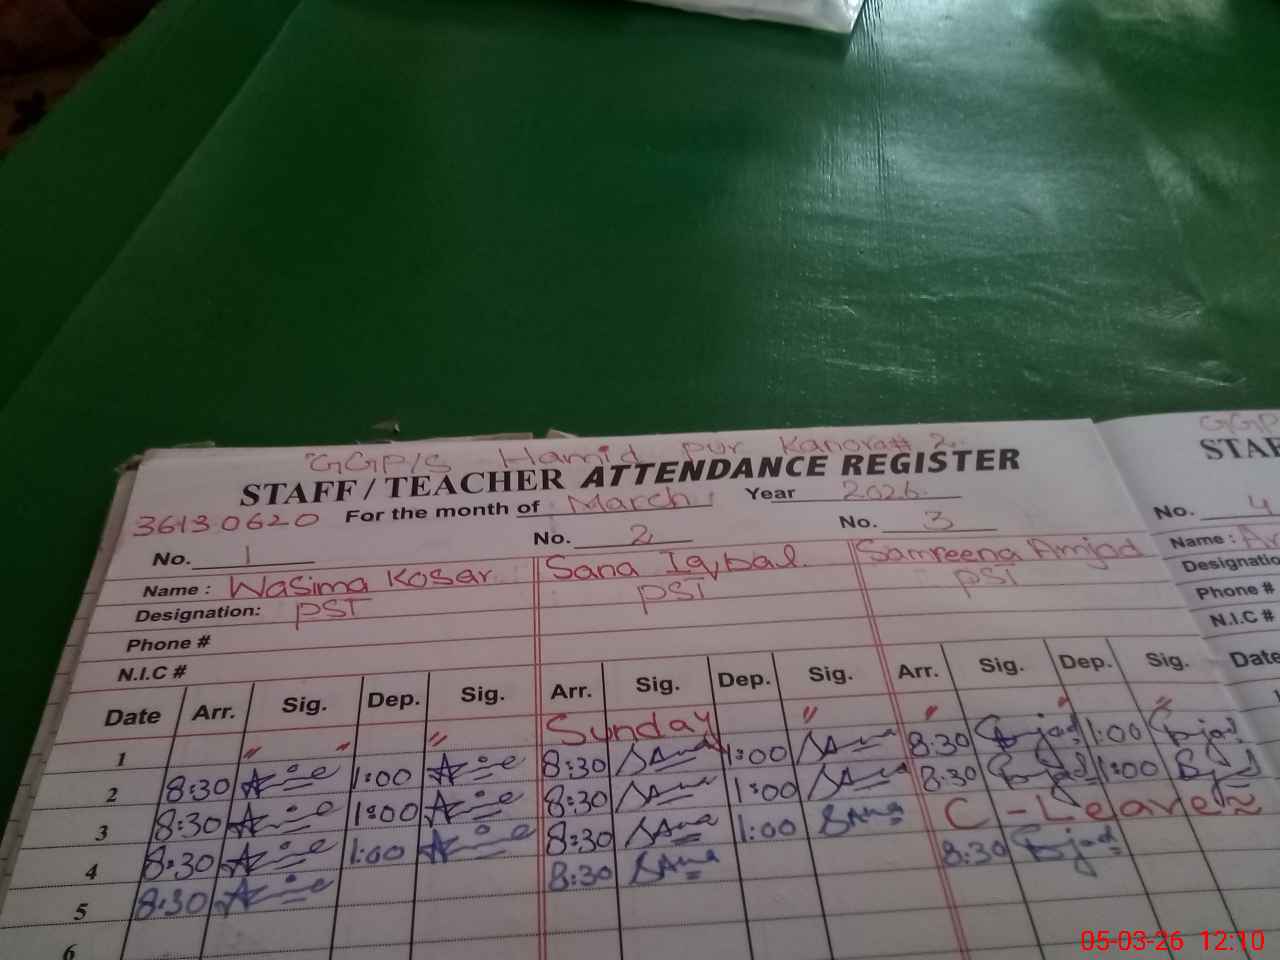 GGP/S Hamid pur Kanora # 2.
STAFF / TEACHER ATTENDANCE REGISTER
36130620 For the month of March Year 2026.
No. 1 No. 2 No. 3
Name : Wasima Kosar Sana Iqbal. Samreena Amjad
Designation: PST PST PST
Phone #
N.I.C #
Date Arr. Sig. Dep. Sig. Arr. Sig. Dep. Sig. Arr. Sig. Dep. Sig.
1 " " " Sunday " " " "
2 8:30 1:00 8:30 Sana 1:00 Sana 8:30 Amjad 1:00 Amjad
3 8:30 1:00 8:30 Sana 1:00 Sana 8:30 Amjad 1:00 Amjad
4 8:30 1:00 8:30 Sana 1:00 Sana C-Leave
5 8:30 8:30 Sana 8:30 Amjad
6
GGP
STAF
No. 4
Name : Ar
Designatio
Phone #
N.I.C #
Date
05-03-26 12:10